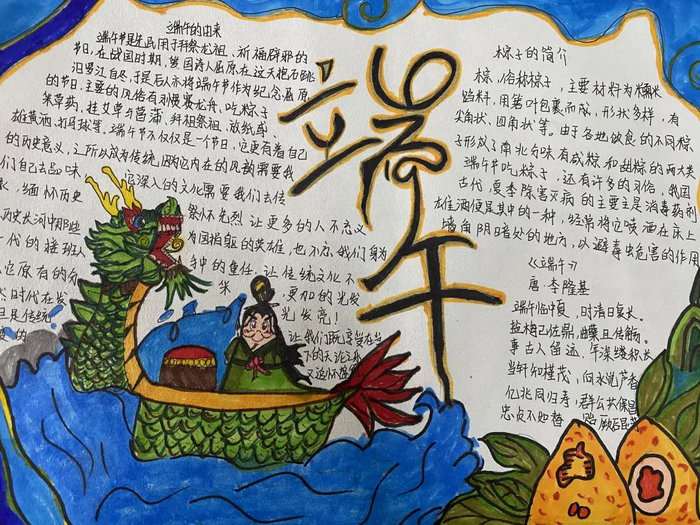 端午的由来
端午节是先民用于拜祭龙祖、祈福辟邪的
节日,在战国时期,楚国诗人屈原在这天抱石跳
汨罗江自尽,于是后人亦将端午节作为纪念屈原
的节日,主要的风俗有划慢赛龙舟、吃粽子
挂艾草与菖蒲、拜祖祭祖、放纸鸢、
雄黄酒、打马球等,端午节不仅仅是一个节日,它更有着自己
的历史意义,之所以成为传统,因为它内在的风韵需要我
们自己去品味
它深入的文化需要我们去传
缅怀历史
祭怀先烈 让更多的人不忘义
历史长河中那些
为国捐躯的英雄,也不忘我们身为
代的接班人
种的重任,让传统文化不
它原有的
更加的光发
时代在发
光发亮!
且传统
让我们
的
下的
端午
粽子的简介
粽,俗称粽子,主要材料为糯米
馅料,用箬叶包裹而成,形状多样,有
尖角状、四角状等。由于各地饮食的不同粽
子形成了南北句味有咸粽和甜粽的两大类
端午节吃粽子,还有许多的习俗,我国
古代,夏季除害灭病的主要是消毒药剂
雄酒便是其中的一种,经常将它喷洒在床上
墙角阴暗处的地方,以避毒虫危害的作用
《端午》
唐·李隆基
端午临中夏,时清日复长。
盐梅已佐鼎,曲糵且传觞。
事古人留迹,年深缕积长
当轩知槿茂,向水觉芦香
亿兆同归寿,群公共保昌
忠贞不如替,贻厥后昆芳